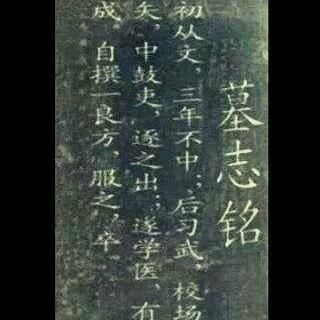 墓志铭
初从文，三年不中；后习武，校场
矢，中鼓吏，逐之出；遂学医，有
成。自撰一良方，服之，卒。